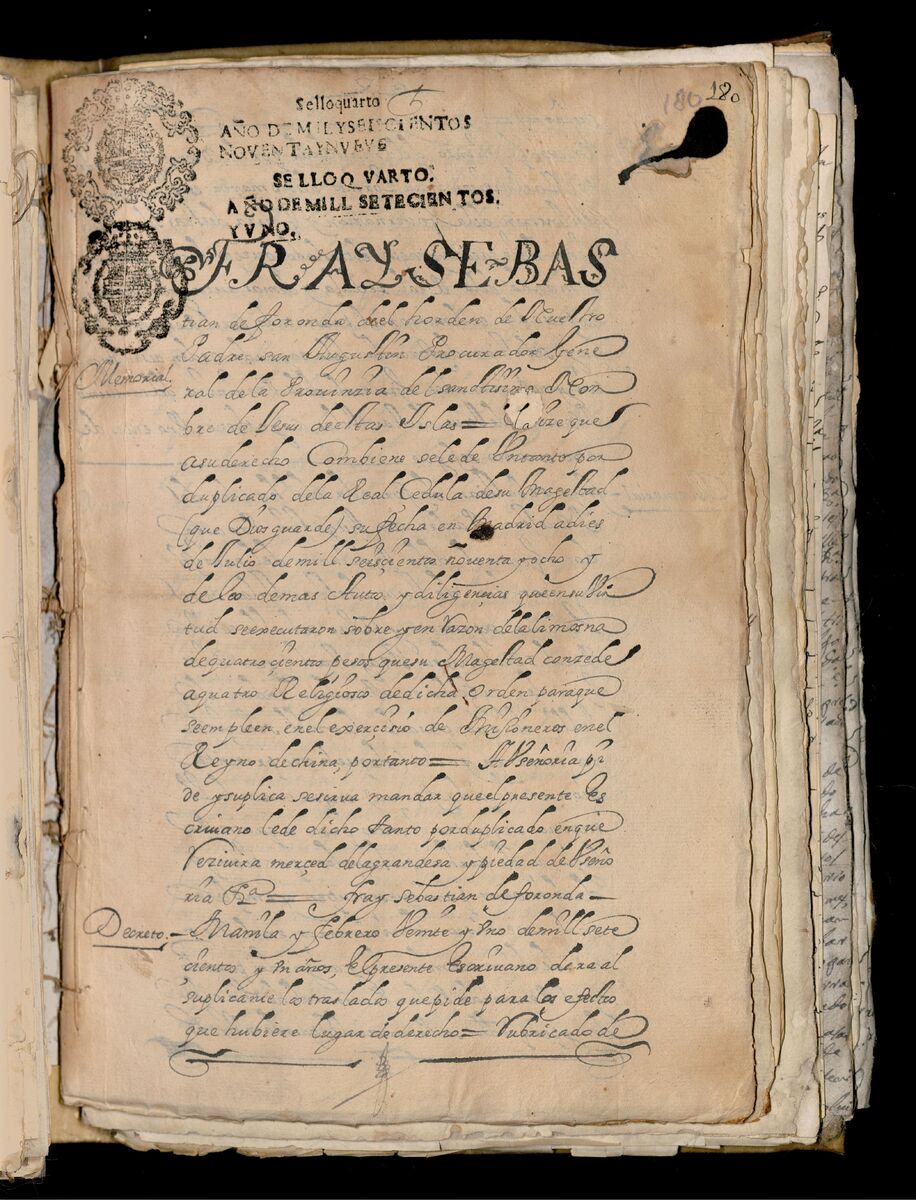 180 180
Selloquarto
AÑO DEMILYSEISCIENTOS
NOVENTAYNVEVE
SELLOQVARTO.
AÑODEMILL SETECIENTOS.
YVNO.
FRAY SEBAS
tian de foronda del horden de Nuestro
Padre san Augustin Procurador Gene
Memorial
ral dela Provinzia del santisimo Nom
bre de Jesus destas Islas = dize que
asuderecho Combiene sele de Vntanto por
duplicado dela Real Cedula desu Magestad
(que Dios guarde) su fecha en Madrid adies
de Julio demill seiscientos noventa yocho y
delos demas Autos y diligencias que ensu Vir
tud seexecutaron sobre yen razon dela limosna
dequatrocientos pesos quesu Magestad conzede
aquatro Religiosos dedicha orden paraque
seempleen enel exerçisio de Misioneros enel
Reyno dechina, portanto = A Vseñoria pi
de ysuplica sesirva mandar queelpresente Es
crivano lede dicho tanto porduplicado enque
rezivira merçed delagrandesa ypiedad de Vseño
ria = fray sebastian de foronda =
Decreto. = Manila y febrero Veinte y Vno demill sete
cientos y Vn años, Elpresente Escrivano dara al
suplicante los traslados quepide para los efectos
que hubiere lugar de derecho = Rubricado de